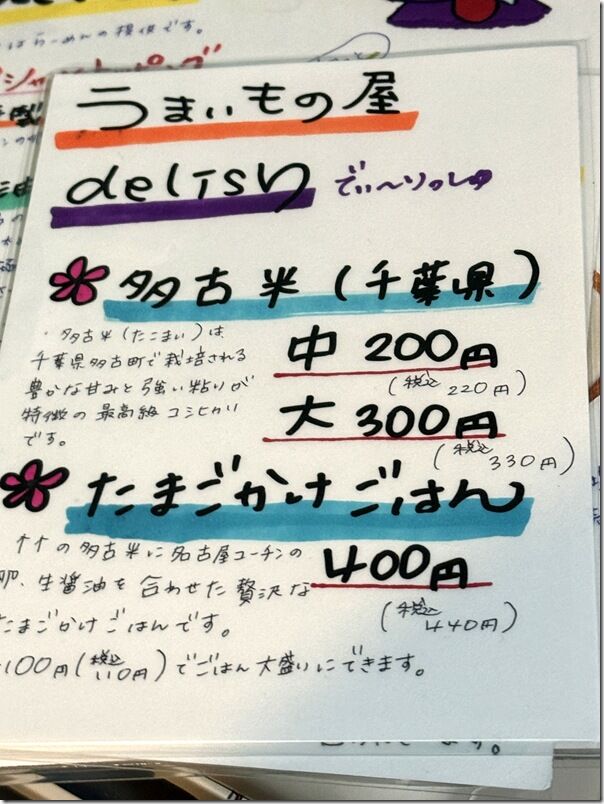 ばらーめんの提供です。
うまいもの屋
delish でぃ〜りっしゅ
多古米(千葉県)
・多古米(たこまい)は、
千葉県多古町で栽培される
豊かな甘みと強い粘りが
特徴の最高級コシヒカリ
です。
中 200円
(税込 220円)
大 300円
(税込 330円)
たまごかけごはん
の多古米に名古屋コーチンの
卵、生醤油を合わせた贅沢な
たまごかけごはんです。
400円
(税込 440円)
100円(税込110円)でごはん大盛りにできます。